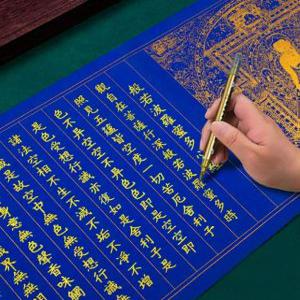 般若波羅蜜多
觀自在菩薩行深般若波羅蜜多時
照見五蘊皆空度一切苦厄舍利子
色不異空空不異色色即是空空即
是色受想行識亦復如是舍利子是
諸法空相不生不滅不垢不淨不增
減是故空中無色無受想行識
身意無色聲香味觸